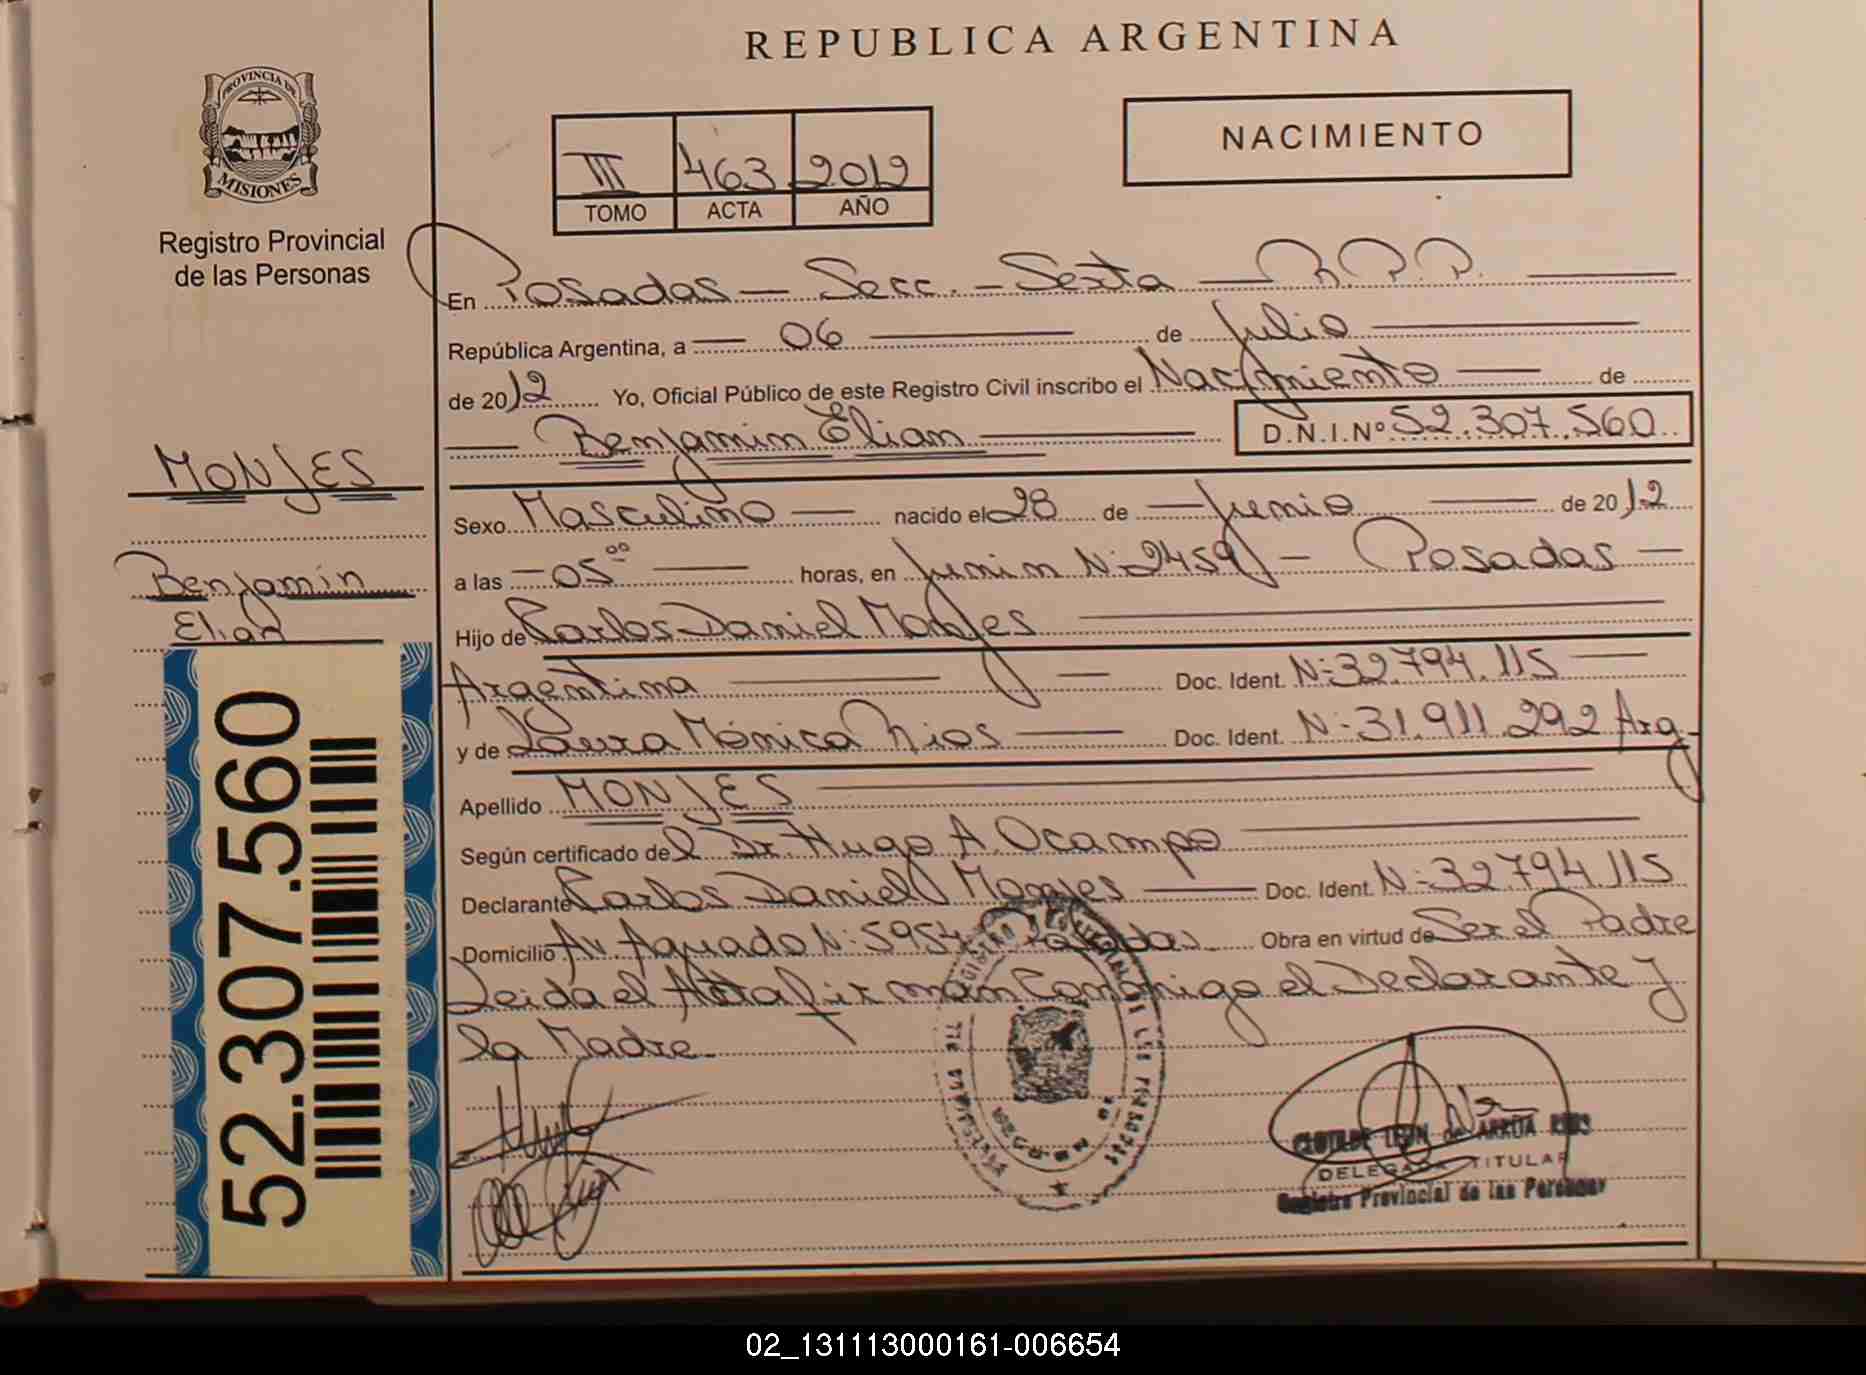 REPUBLICA ARGENTINA
PROVINCIA DE
MISIONES
Registro Provincial
de las Personas
III 463 2012
TOMO ACTA AÑO
NACIMIENTO
En Posadas — Secc. — Sexta — R.P.P.
República Argentina, a — 06 — de Julio —
de 2012 Yo, Oficial Público de este Registro Civil inscribo el Nacimiento — de
— Benjamin Elian — D.N.I.Nº 52.307.560
MONJES
Benjamín
Elian
52.307.560
Sexo Masculino — nacido el 28 de — Junio — de 2012
a las — 05 00 — horas, en Junin N: 2459 — Posadas —
Hijo de Carlos Daniel Monjes —
Argentina — Doc. Ident. N: 32.794.115 —
y de Laura Mónica Rios — Doc. Ident. N: 31.911.292 Arg.
Apellido MONJES —
Según certificado del Dr. Hugo A. Ocampo —
Declarante Carlos Daniel Monjes — Doc. Ident. N: 32794.115
Domicilio Av. Aguado N: 5954 Posadas Obra en virtud de Ser el Padre
Leida el Acta firman Conmigo el Declarante y
la Madre.
CLOTILDE LEON de ARRUA RIOS
DELEGADA TITULAR
Registro Provincial de las Personas
02_131113000161-006654